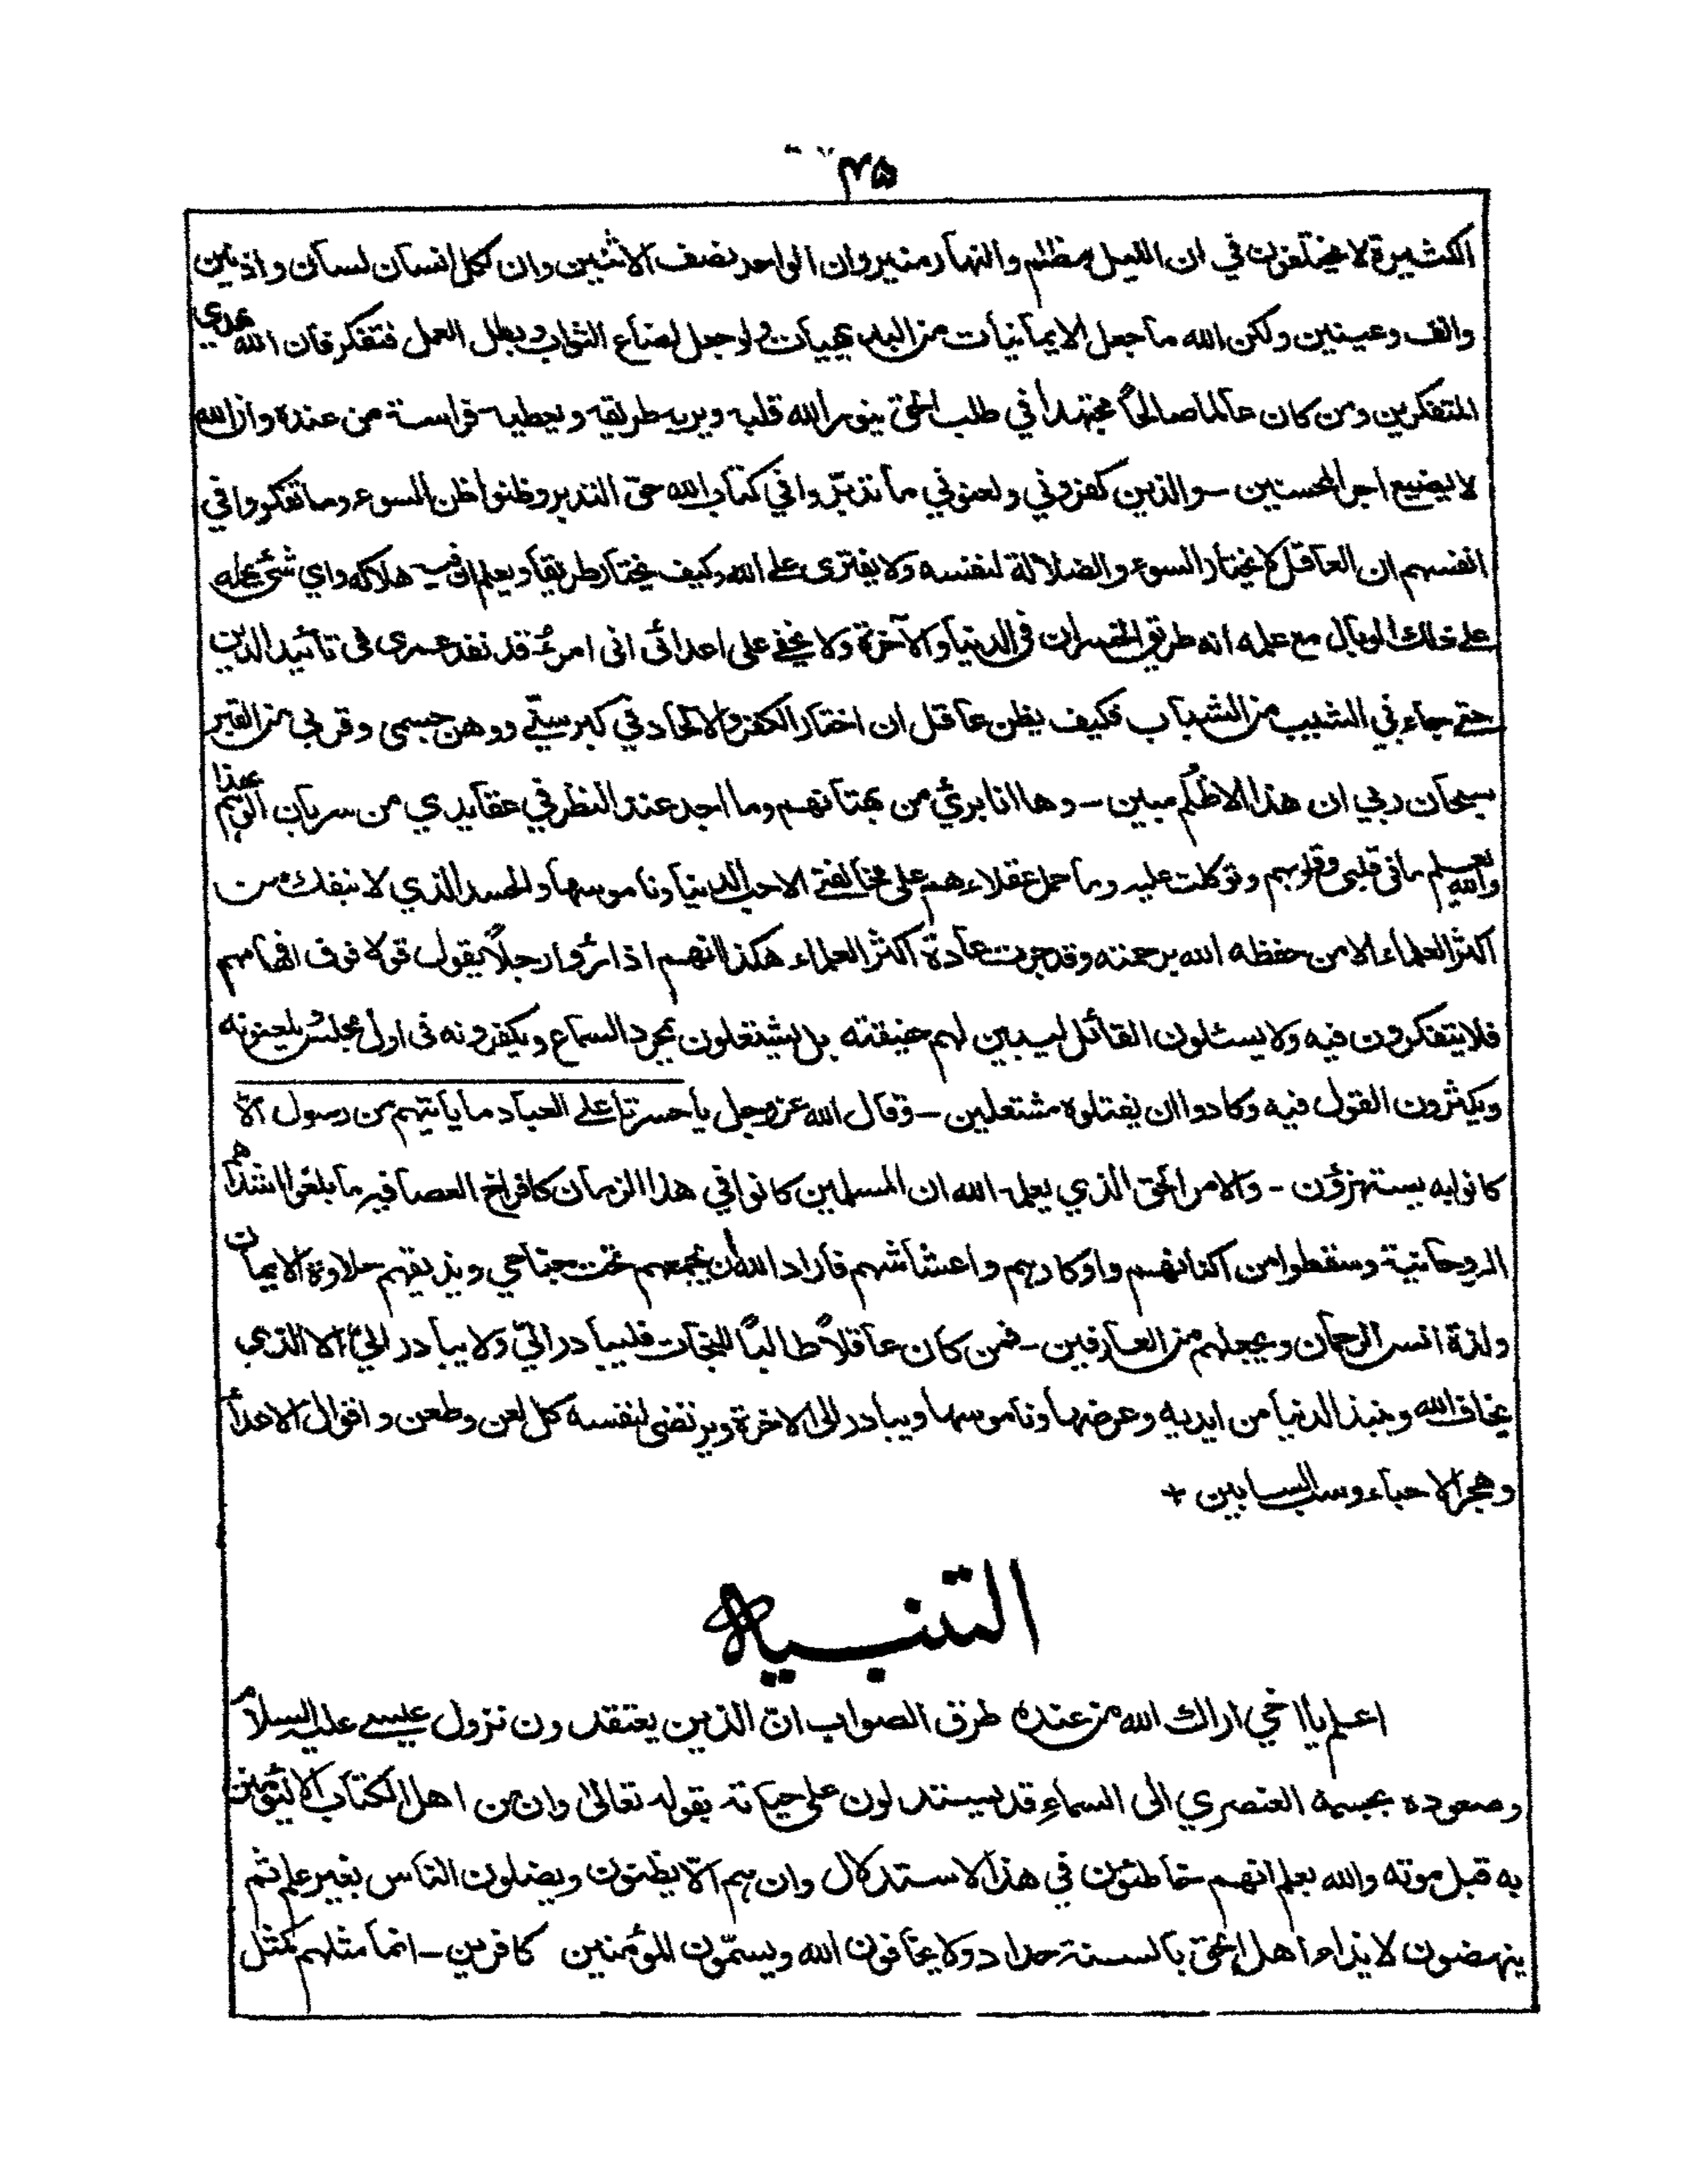 ۴۵
الكثيرة لا يختلفون في ان الليل مظلم والنهار منير وان الواحد نصف الاثنين وان لكل انسان لسان واذنين
وانف وعينين ولكن الله ما جعل الايمانيات من البديهيات ولو جعل لضاع الثواب وبطل العمل فتفكر فان الله يهدي
المتفكرين ومن كان عالما صالحًا مجتهدا في طلب الحق ينور الله قلبه ويريه طريقه ويعطيه فراسة من عنده وان الله
لا يضيع اجر المحسنين - والذين كفروني ولعنوني ما تدبّروا في كتاب الله حق التدبر وظنوا ظن السوء وما تفكروا في
انفسهم ان العاقل لا يختار السوء والضلالة لنفسه ولا يفترى على الله وكيف يختار طريقا ويعلم ان فيه هلاكه واي شئ يحمله
على ذلك الوبال مع علمه انه طريق الخسران في الدنيا والآخرة ولا يخفى على اعدائى انى امرءٌ قد نفد عمرى فى تائيد الدين
حتى جاءني الشيب من الشباب فكيف يظن عاقل ان اختار الكفر والالحاد في كبر سنّي ووهن جسمى وقربي من القبر
سبحان ربي ان هذا الا ظلم مبين - وها انا برئ من بهتانهم وما اجد عند النظر في عقايدي من سريان الوهم هذا
والله يعلم ما فى قلبى وقلوبهم وتوكلت عليه وما حمل عقلاءهم على مخالفتي الا حب الدنيا وناموسها والحسد الذي لا ينفك من
اكثر العلماء الا من حفظه الله برحمته وقد جرت عادة اكثر العلماء هكذا انهم اذا رؤا رجلًا يقول قولا فوق افهامهم
فلا يتفكرون فيه ولا يسئلون القائل ليبين لهم حقيقته بل يشتعلون بمجرد السماع ويكفرونه فى اول مجلس ويلعنونه
ويكثرون القول فيه وكادوا ان يقتلوه مشتعلين - وقال الله عز وجل يا حسرتا على العباد ما ياتيهم من رسول الّا
كانوا به يستهزؤن - والامر الحق الذي يعلمه الله ان المسلمين كانوا في هذا الزمان كافراخ العصافير ما بلغوا اشدهم
الروحانية وسقطوا من اكنانهم واوكارهم واعشاشهم فاراد الله ان يجمعهم تحت جناحي ويذيقهم حلاوة الايمان
ولذة انس الرحمان ويجعلهم من العارفين - فمن كان عاقلًا طالبًا للنجات فليبادر اليّ ولا يبادر اليّ الا الذي
يخاف الله وينبذ الدنيا من ايديه وعرضها وناموسها ويبادر الى الاخرة ويرتضى لنفسه كل لعن وطعن واقوال الاعداء
وهجر الاحباء وسب السابين +
التنبيه
اعلم يا اخي اراك الله من عنده طرق الصواب ان الذين يعتقدون نزول عيسى عليه السلام
وصعوده بجسمه العنصري الى السماء قد يستدلون على حياته بقوله تعالى وان من اهل الكتاب الا ليؤمنن
به قبل موته والله يعلم انهم خاطئون في هذا الاستدلال وان هم الّا يظنون ويضلون الناس بغير علم ثم
ينهضون لايذاء اهل الحق بالسنة حداد ولا يخافون الله ويسمّون المؤمنين كافرين - انما مثلهم كمثل